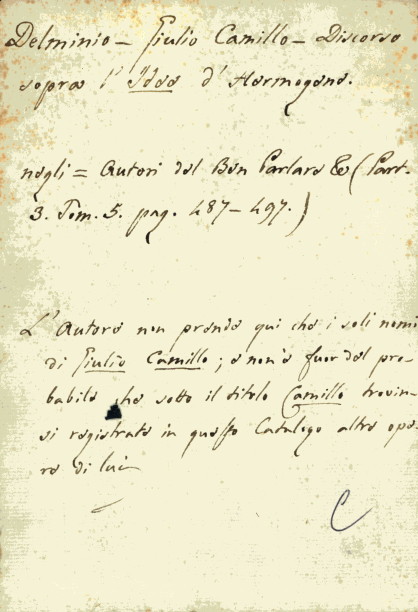 Delminio – Giulio Camillo – Discorso
sopra l'Idee d'Hermogene.
negli = Autori del Ben Parlare &c (Part.
3. Tom. 5. pag. 487–497.)
L'Autore non prende qui che i soli nomi
di Giulio Camillo; e non è fuor del pro-
babile che sotto il titolo Camillo trovin-
si registrate in questo Catalogo altre ope-
re di lui
C